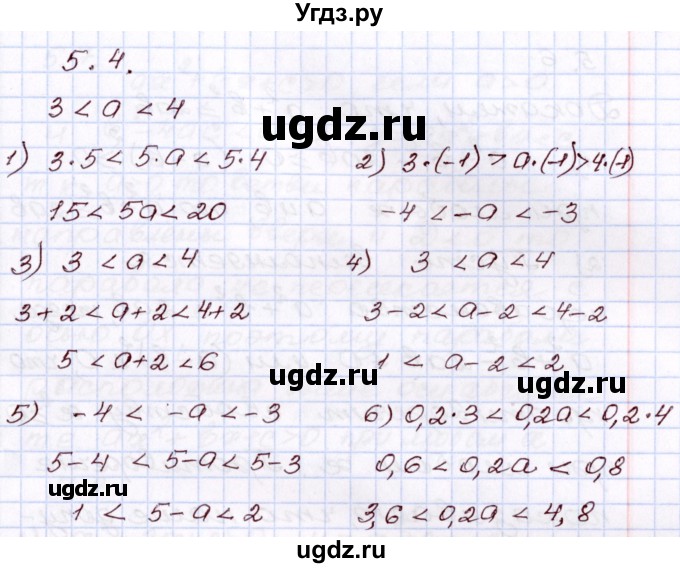 Угдз.ру
5.4.
3 < a < 4
ugdz.ru
1) 3·5 < 5·a < 5·4
2) 3·(-1) > a·(-1) > 4·(-1)
15 < 5a < 20
-4 < -a < -3
3) 3 < a < 4
4) 3 < a < 4
3+2 < a+2 < 4+2
3-2 < a-2 < 4-2
5 < a+2 < 6
1 < a-2 < 2
ugdz.ru
ugdz.ru
5) -4 < -a < -3
6) 0,2·3 < 0,2a < 0,2·4
5-4 < 5-a < 5-3
0,6 < 0,2a < 0,8
ugdz.ru
1 < 5-a < 2
3,6 < 0,2a < 4,8
ugdz.ru